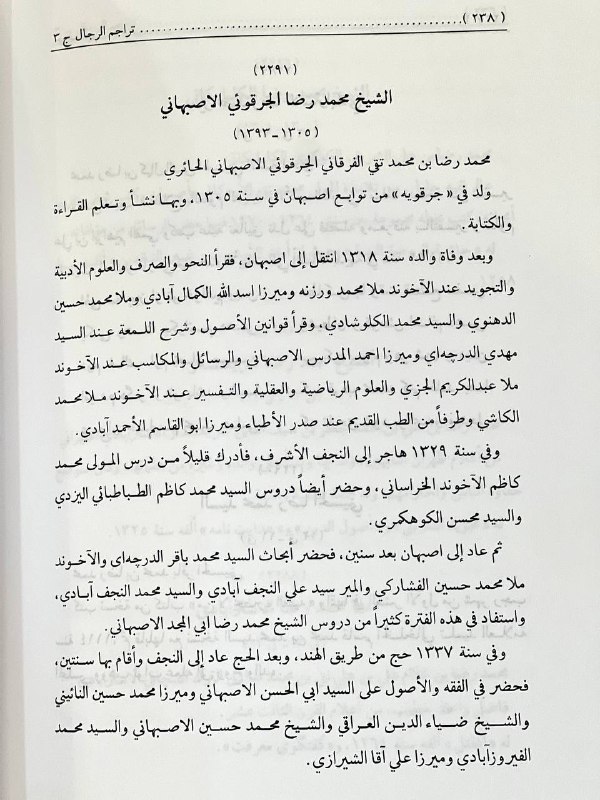 (٢٣٨) .......................................................... تراجم الرجال ج ٣
(٢٢٩١)
الشيخ محمد رضا الجرقوئي الاصبهاني
(١٣٠٥-١٣٩٣)
محمد رضا بن محمد تقي الفرقاني الجرقوئي الاصبهاني الحائري
ولد في «جرقويه» من توابع اصبهان في سنة ١٣٠٥، وبها نشأ وتعلم القراءة
والكتابة.
وبعد وفاة والده سنة ١٣١٨ انتقل إلى اصبهان، فقرأ النحو والصرف والعلوم الأدبية
والتجويد عند الآخوند ملا محمد ورزنه وميرزا اسدالله الكمال آبادي وملا محمد حسين
الدهنوي والسيد محمد الكلوشادي، وقرأ قوانين الأصول وشرح اللمعة عند السيد
مهدي الدرچه‌اي وميرزا احمد المدرس الاصبهاني والرسائل والمكاسب عند الآخوند
ملا عبدالكريم الجزي والعلوم الرياضية والعقلية والتفسير عند الآخوند ملا محمد
الكاشي وطرفاً من الطب القديم عند صدر الأطباء وميرزا ابو القاسم الأحمد آبادي.
وفي سنة ١٣٢٩ هاجر إلى النجف الأشرف، فأدرك قليلاً من درس المولى محمد
كاظم الآخوند الخراساني، وحضر أيضاً دروس السيد محمد كاظم الطباطبائي اليزدي
والسيد محسن الكوهكمري.
ثم عاد إلى اصبهان بعد سنين، فحضر أبحاث السيد محمد باقر الدرچه‌اي والآخوند
ملا محمد حسين الفشاركي والمير سيد علي النجف آبادي والسيد محمد النجف آبادي،
واستفاد في هذه الفترة كثيراً من دروس الشيخ محمد رضا ابي المجد الاصبهاني.
وفي سنة ١٣٣٧ حج من طريق الهند، وبعد الحج عاد إلى النجف وأقام بها سنتين،
فحضر في الفقه والأصول على السيد ابي الحسن الاصبهاني وميرزا محمد حسين النائيني
والشيخ ضياء الدين العراقي والشيخ محمد حسين الاصبهاني والسيد محمد
الفيروزآبادي وميرزا علي آقا الشيرازي.